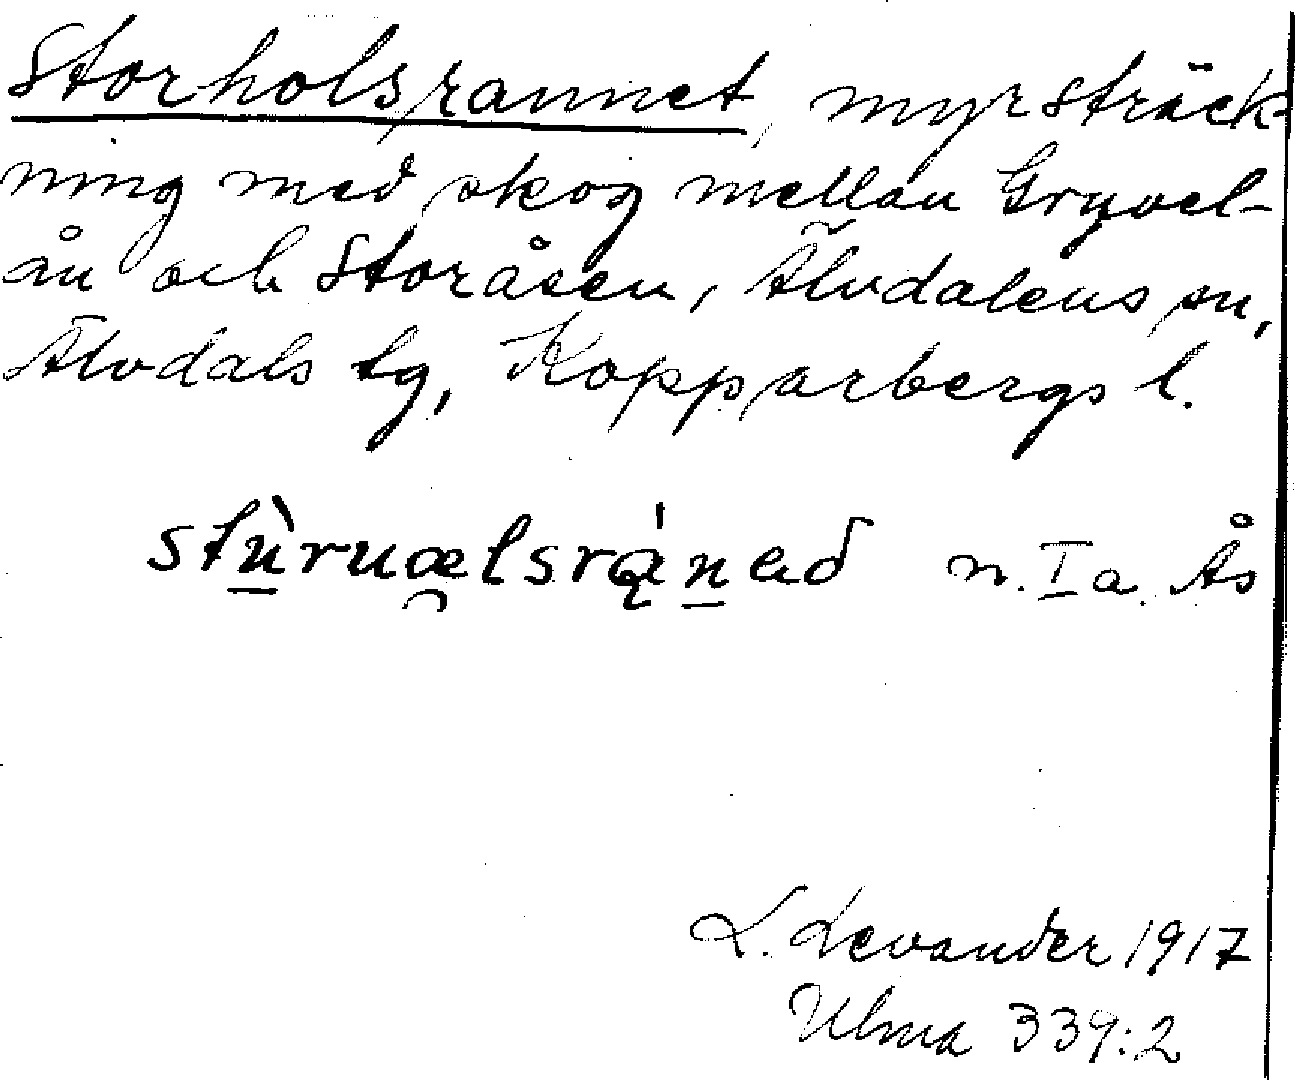 Storholsrannet, myrsträck-
ning med skog mellan Gryvel-
ån och Storåsen, Älvdalens sn,
Älvdals tg, Kopparbergs l.
n. I a. Ås
L. Levander 1917
Ulma 339:2